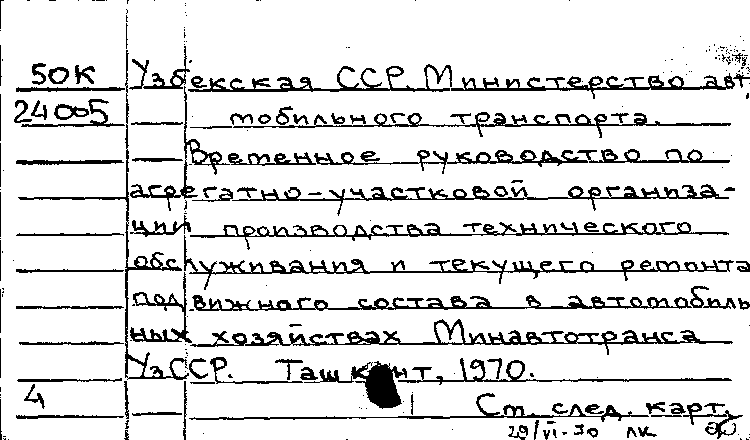 50К Узбекская ССР. Министерство авт
24005 мобильного транспорта.
Временное руководство по
агрегатно-участковой организа-
ции производства технического
обслуживания и текущего ремонта
подвижного состава в автомобиль
ных хозяйствах Минавтотранса
УзССР. Ташкент, 1970.
4 См. след. карт.
29/VI-70 ЛК